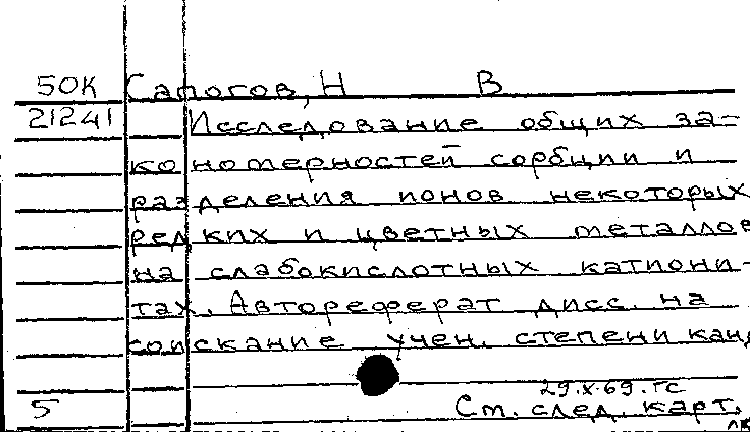 50К Сапогов, Н В
21241 Исследование общих за-
кономерностей сорбции и
разделения ионов некоторых
редких и цветных металлов
на слабокислотных катиони-
тах. Автореферат дисс. на
соискание учен. степени канд
29.X.69. гс
5 См. след. карт.